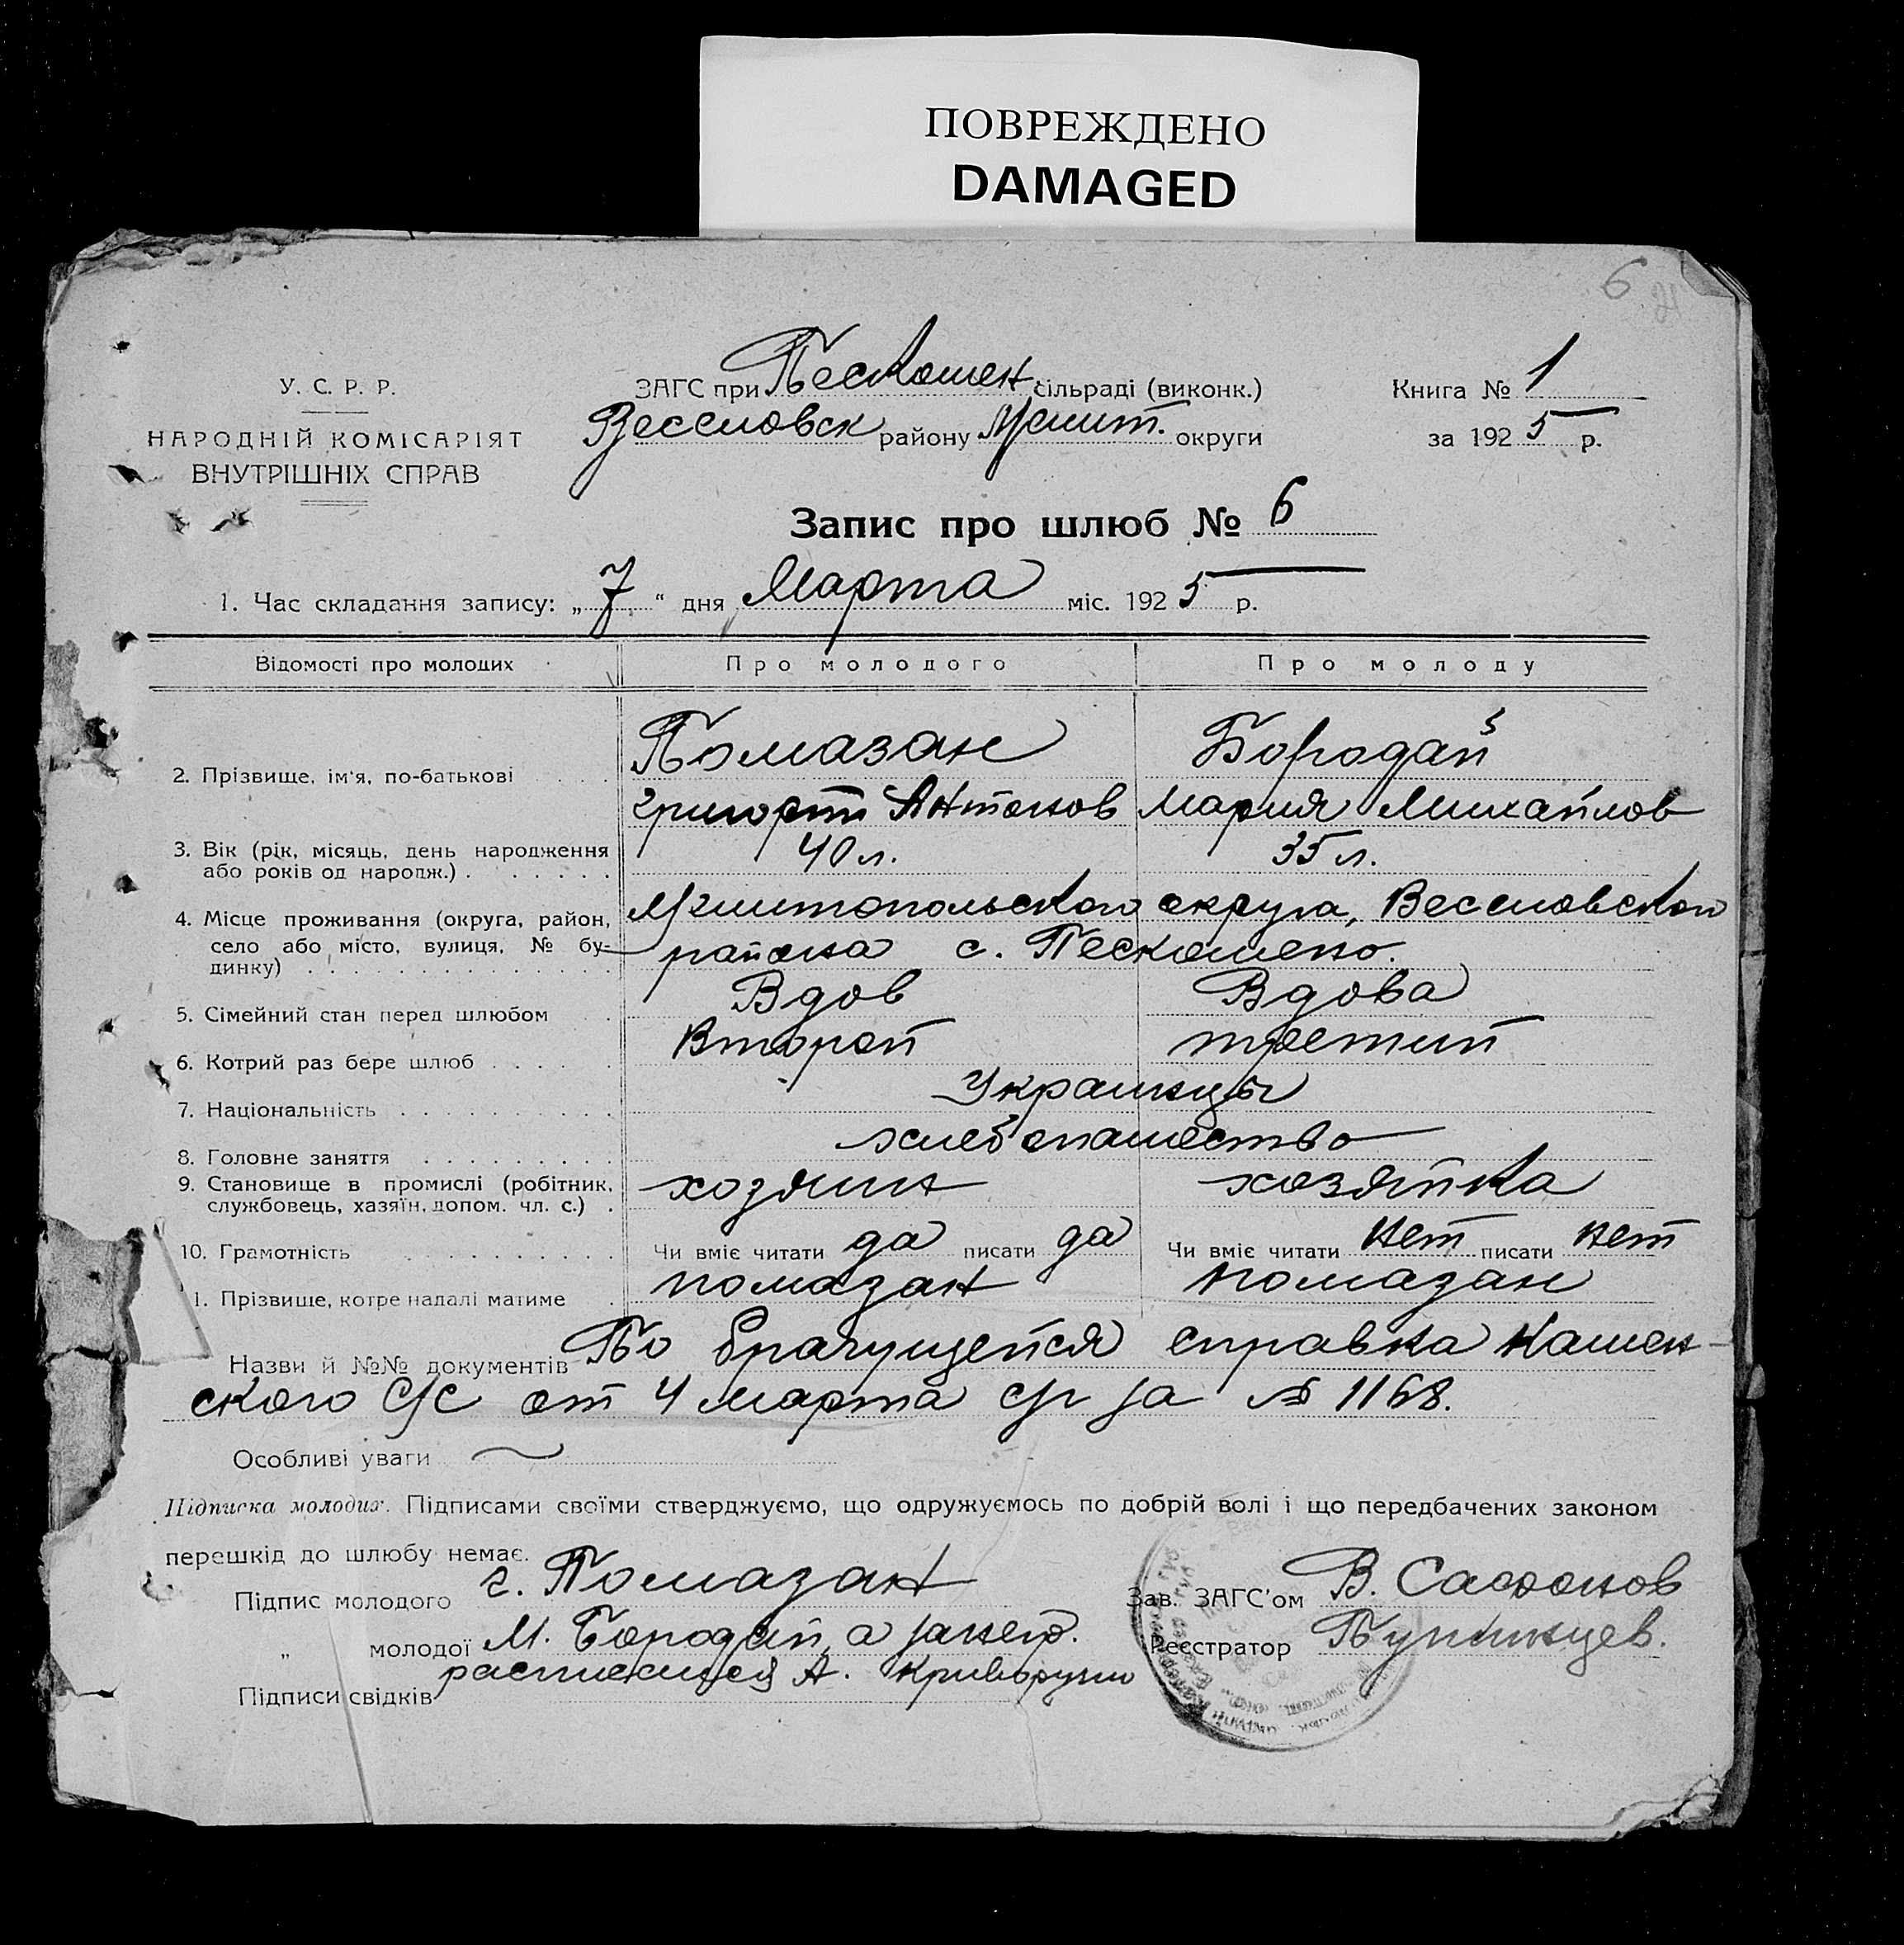 ПОВРЕЖДЕНО
DAMAGED
6
У. С. Р. Р.
НАРОДНІЙ КОМІСАРІЯТ
ВНУТРІШНІХ СПРАВ
ЗАГС при Пескошен сільраді (виконк.)
Веселовск району Мелит. округи
Книга № 1
за 1925 р.
Запис про шлюб № 6
1. Час складання запису: „7“ дня Марта міс. 1925 р.
Відомості про молодих Про молодого Про молоду
2. Прізвище, ім'я, по-батькові Помазан Бородай
Григорий Антонов Мария Михайлов
3. Вік (рік, місяць, день народження або років од народж.) 40 л. 35 л.
4. Місце проживання (округа, район, Мелитопольского округа, Веселовского
село або місто, вулиця, № будинку) района с. Пескошено.
5. Сімейний стан перед шлюбом Вдов Вдова
6. Котрий раз бере шлюб Второй третий
7. Національність Украинцы
8. Головне заняття хлебопашество
9. Становище в промислі (робітник, службовець, хазяїн, допом. чл. с.) хозяин хозяйка
10. Грамотність Чи вміє читати да писати да Чи вміє читати нет писати нет
1. Прізвище, котре надалі матиме помазан помазан
Назви й №№ документів По брачущейся справка Кашен-
ского С/С от 4 марта с/г за № 1168.
Особливі уваги
Підписка молодих. Підписами своїми стверджуємо, що одружуємось по добрій волі і що передбачених законом
перешкід до шлюбу немає.
Підпис молодого г. Помазан
„ молодої М. Бородай, а за
расписался А. Криворучко
Підписи свідків
Зав. ЗАГС'ом В. Сафонов
Реєстратор